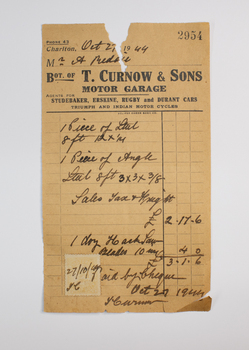 PHONE 23
2954
Charlton, Oct 2 1944
Mr A
BOT. OF T. CURNOW & SONS
MOTOR GARAGE
AGENTS FOR
STUDEBAKER, ERSKINE, RUGBY and DURANT CARS
TRIUMPH AND INDIAN MOTOR CYCLES
1 Piece of Stal
8 ft
1 Piece of Angle
Stal 8 ft 3 x 3 x 3/8
Sales Tax & Freight
£ 2-17-6
1 doz Hack Saw
10 4 0
£ 3-1-6
27/10/44
Paid by Cheque
Oct 27 1944
T Curnow